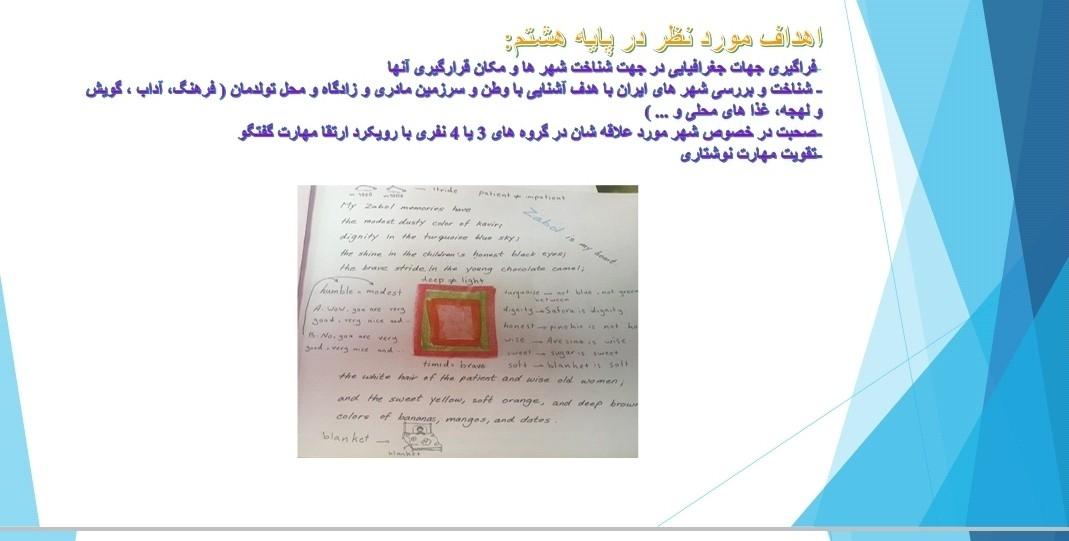 اهداف مورد نظر در پایه هشتم:
-فراگیری جهات جغرافیایی در جهت شناخت شهر ها و مکان قرارگیری آنها
- شناخت و بررسی شهر های ایران با هدف آشنایی با وطن و سرزمین مادری و زادگاه و محل تولدمان ( فرهنگ، آداب ، گویش
و لهجه، غذا های محلی و ... )
-صحبت در خصوص شهر مورد علاقه شان در گروه های 3 یا 4 نفری با رویکرد ارتقا مهارت گفتگو
-تقویت مهارت نوشتاری
stride patient ≠ impatient
My Zabol memories have
the modest dusty color of kavir;
Zabol in my heart
dignity in the turquoise blue sky;
the shine in the children's honest black eyes;
the brave stride in the young chocolate camel;
deep ≠ light
humble = modest
A: Wow, you are very
good, very nice and
B: No, you are very
good, very nice and
turquoise → not blue, not green
between
dignity → Satora is dignity
honest → pinokio is not
wise → Avesina is wise
sweet → sugar is sweet
soft → blanket is soft
timid ≠ brave
the white hair of the patient and wise old women;
and the sweet yellow, soft orange, and deep brown
colors of bananas, mangos, and dates.
blanket →
blanket